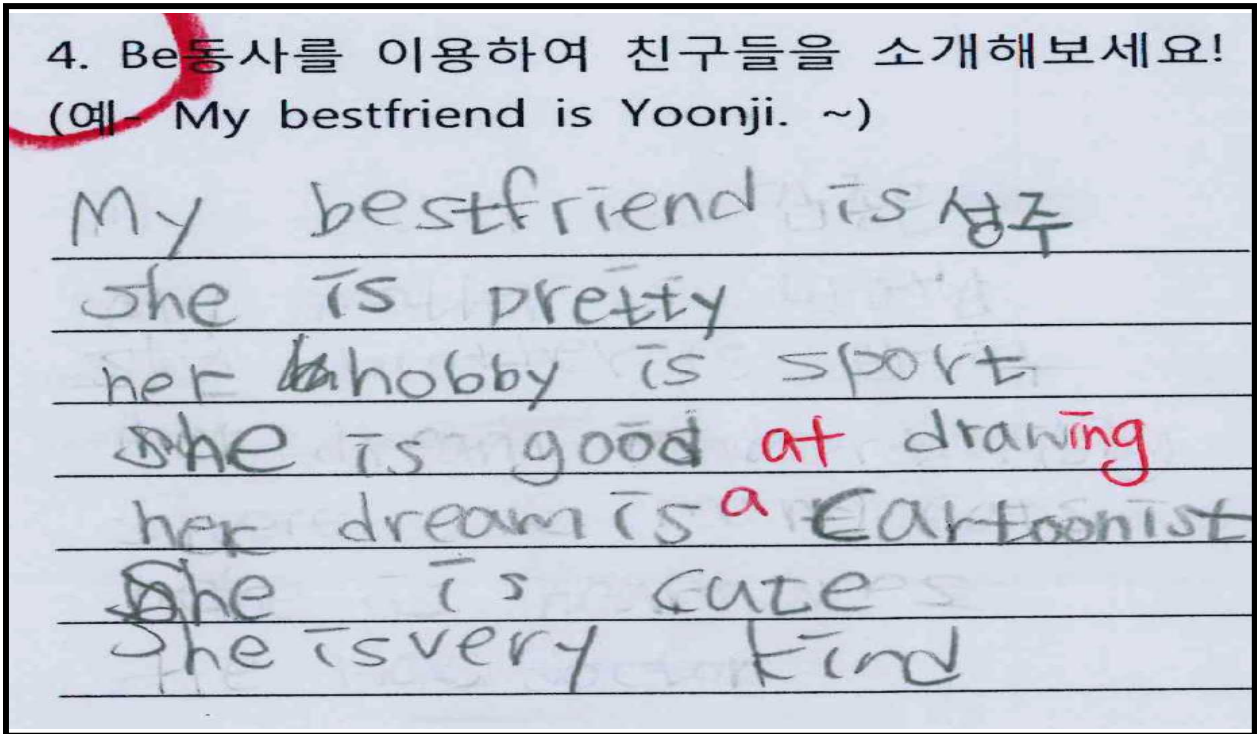 4. Be동사를 이용하여 친구들을 소개해보세요!
(예- My bestfriend is Yoonji. ~)
My bestfriend is 성주
she is pretty
her hobby is sport
she is good at drawing
her dream is a cartoonist
She is cute
She is very kind